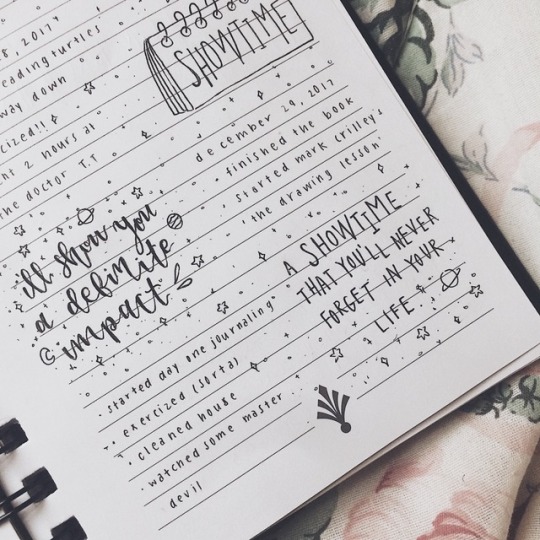 28, 2017
reading turtles
way down
cized!!
nt 2 hours at
the doctor T.T
ill show you
a definite
impact
started day one journaling
· exercized (sorta)
· cleaned house
· watched some master
devil
SHOWTIME
december 29, 2017
· finished the book
· started mark crilley
'the drawing lesson'
A SHOWTIME
THAT YOU'LL NEVER
FORGET IN YOUR
LIFE